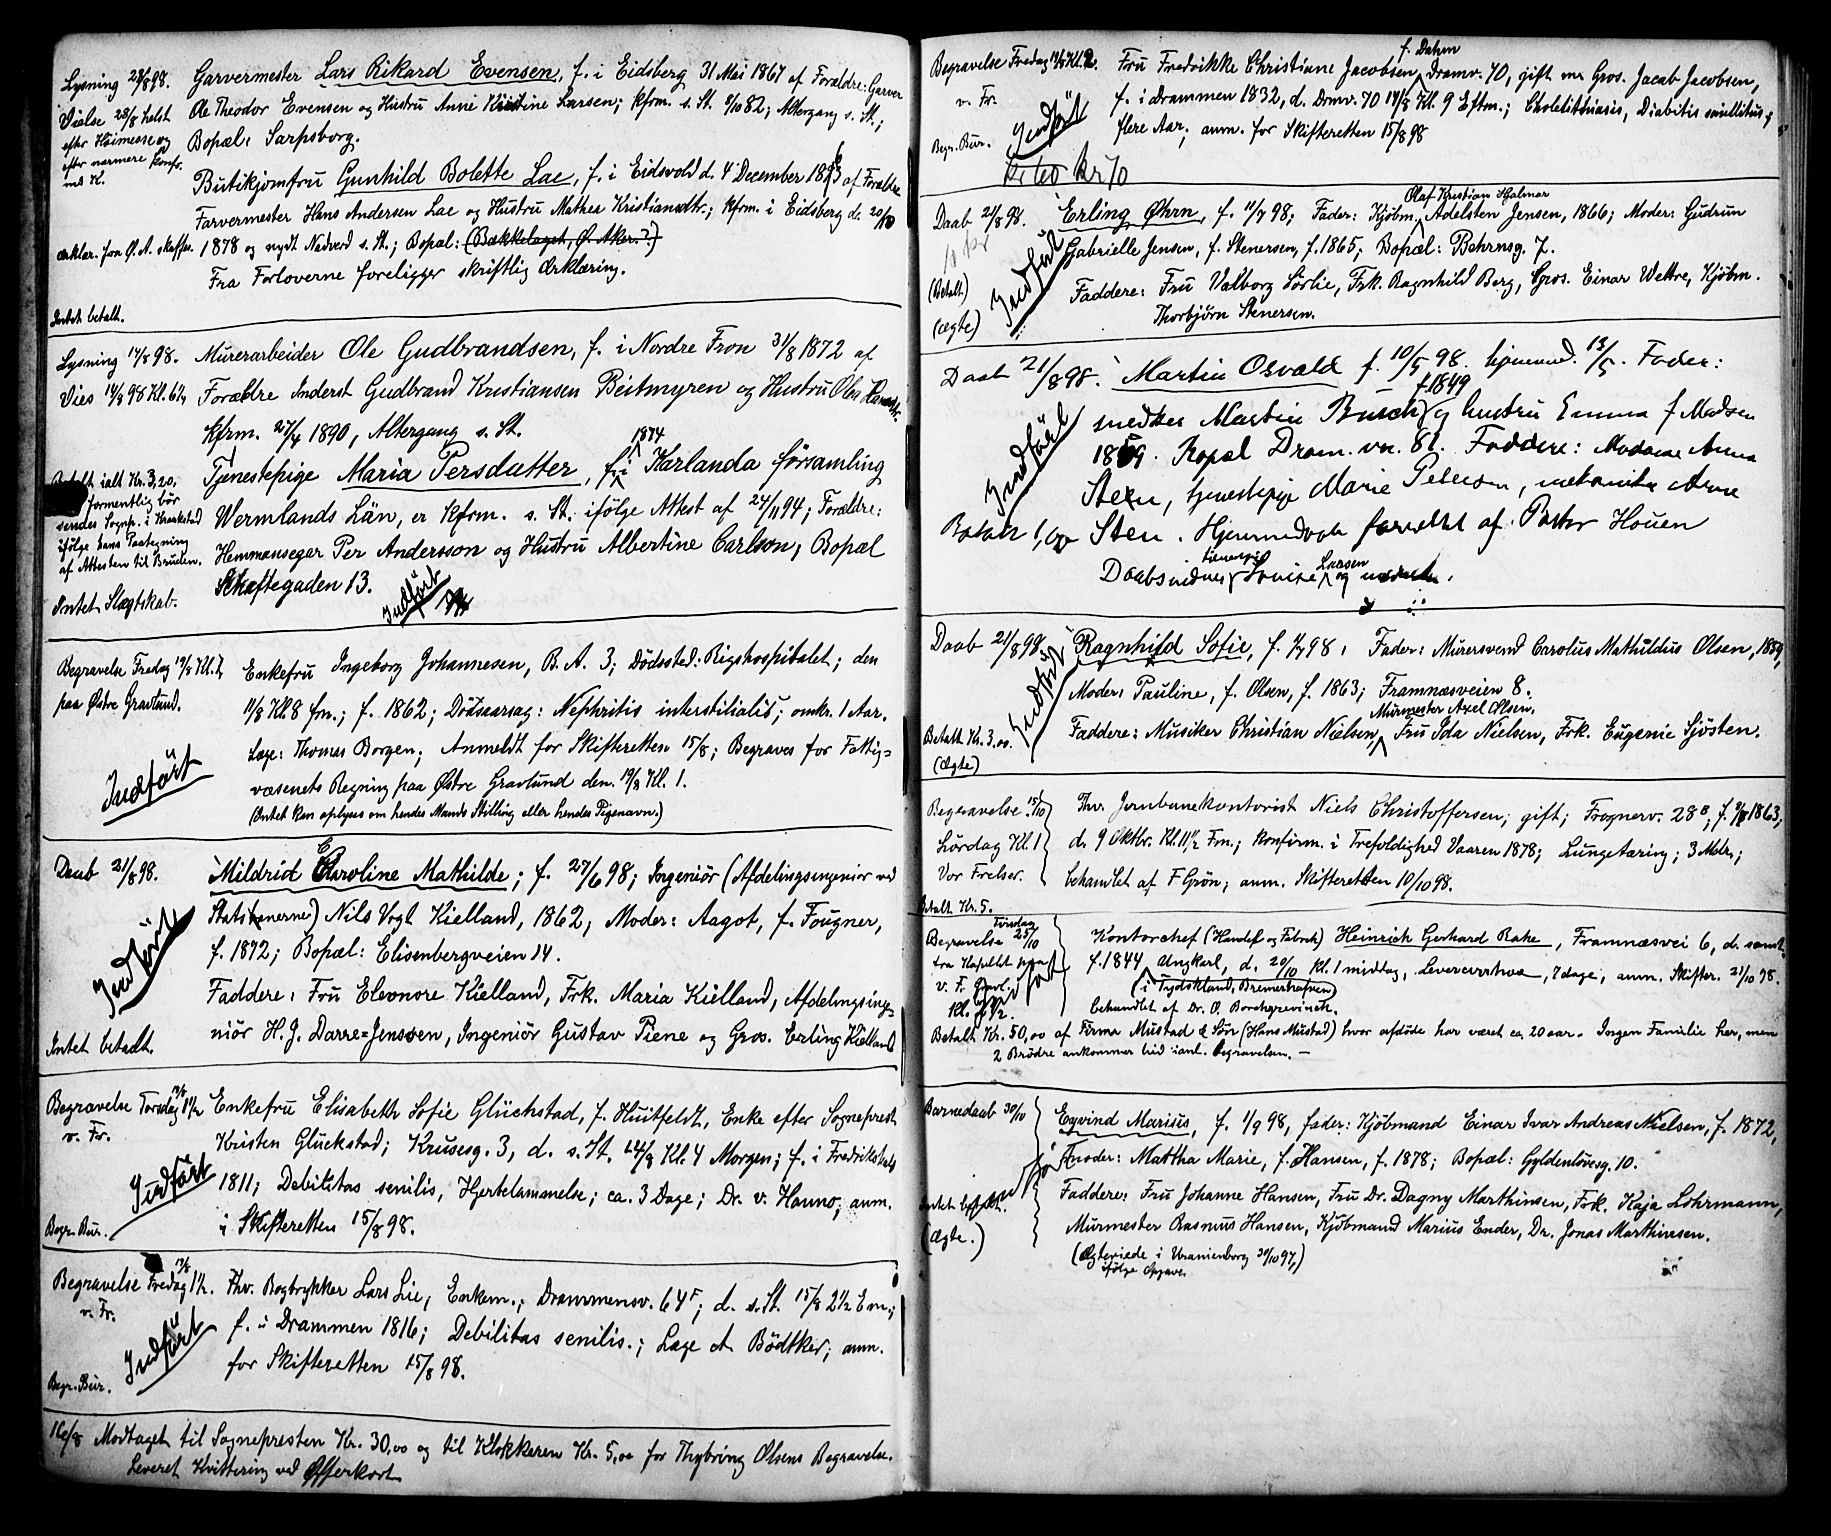 Lysning 28/8 98. Garvermester Lars Rikard Evensen, f. i Eidsberg 31 Mai 1867 af Forældre: Garver
Vielse 28/8 helst Ole Theodor Evensen og Hustru Anne Kristine Larsen; kfrm. s. St. 1/10 82; Altergang s. St.;
efter Høimesse og Bopæl: Sarpsborg.
efter nærmere Konfr.
med K. Butikjomfru Gunhild Bolette Lae, f. i Eidsvold d. 4 December 1863 af Forældre
Farvermester Hans Andersen Lae og Hustru Mathea Kristiansdtr.; kfrm. i Eidsberg d. 20/10
Ærklær. fra Ø. A. skaffes. 1878 og nydt Nadverd s. St.; Bopæl: (Bækkelaget, Ø. Aker.?)
Fra Forloverne foreligger skriftlig Ærklæring.
Intet betalt.
Lysning 14/8 98. Murerarbeider Ole Gudbrandsen, f. i Nordre Fron 31/8 1872 af
Vies 14/8 98 Kl. 6½ Forældre Inderst Gudbrand Kristiansen Beitmyren og Hustru Olea Hansdtr.
kfrm. 27/4 1890, Altergang s. St.
1874
Tjenestepige Maria Persdatter, f. i Karlanda församling
Betalt ialt Kr. 3,20,
formentlig bör Wermlands Län, er kfrm. s. St. ifölge Attest af 24/11 94; Forældre:
sendes Sognep. i Kraakstad
ifölge hans Paategning Hemmansegar Per Andersson og Hustru Albertine Carlson; Bopæl
af Attesten til Bruden.
Schaftegaden 13.
Intet Slægtskab. Indført
Begravelse Fredag 19/8 Kl. 1, Enkefru Ingeborg Johannesen, B. A. 3; Dödssted: Rigshospitalet; den
paa Østre Gravlund. 11/8 Kl 8 fm.; f. 1862; Dödsaarsag: Nephritis interstitialis; omkr. 1 Aar.
Læge: Thomas Borgen; Anmeldt for Skifteretten 15/8; Begraves for Fattig=
Indført væsenets Regning paa Østre Gravlund den 19/8 Kl. 1.
(Intet kan oplyses om hendes Mands Stilling eller hendes Pigenavn.)
Daab 21/8 98. Mildrid Caroline Mathilde; f. 27/6 98; Ingeniör (Afdelingsingeniør ved
Statsbanerne) Nils Vogt Kielland, 1862; Moder: Aagot, f. Fougner,
Indført f. 1872; Bopæl: Elisenbergveien 14.
Faddere: Fru Eleonore Kielland, Frk. Maria Kielland, Afdelingsinge=
niör H. J. Darre=Jenssen, Ingeniör Gustav Piene og Gros. Erling Kielland
Intet betalt.
Begravelse Torsdag 18/8 1½ Enkefru Elisabeth Sofie Glückstad, f. Huitfeldt, Enke efter Sogneprest
v. Fr. Kristen Glückstad; Krusesg. 3, d. s. St. 14/8 Kl. 4 Morgen; f. i Fredrikstad
Indført 1811; Debilitas senilis, Hjertelammelse; ca. 3 Dage; Dr. v. Hanno; anm.
Begr. Bur. i Skifteretten 15/8 98.
Begravelse Fredag 19/8 1½. Fhv. Bogtrykker Lars Lie; Enkem.; Drammensv. 64F; d. s. St. 15/8 2½ Em.;
v. Fr. f. i Drammen 1816; Debilitas senilis.; Læge A. Bödtker; anm.
Indført for Skifteretten 15/8 98.
Begr. Bur.
16/8 Modtaget til Sognepresten Kr. 30,00 og til Klokkeren Kr. 5,00 for Thybring Olsens Begravelse.
Leveret Kvittering ved Offerkort
f. Dahm
Begravelse Fredag 19/8 Kl. 2. Fru Fredrikke Christiane Jacobsen, Dramv. 70, gift m. Gros. Jacob Jacobsen,
v. Fr. f. i Drammen 1832, d. Drmv. 70 14/8 Kl. 9 Eftm.; Cholelithiasis, Diabitis mellitus;
Indført flere Aar; anm. for Skifteretten 15/8 98
Begr. Bur.
Kr. 60 Kr 70
Olaf Kristian Hjalmar
Daab 21/8 98. Erling Øhrn, f. 11/7 98; Fader: Kjöbm. Adelsten Jensen, 1866; Moder: Gudrun
Gabrielle Jensen, f. Stenersen, f. 1865; Bopæl: Behrnsg. 7.
(Betalt) Indført Faddere: Fru Valborg Sörlie, Frk. Ragnhild Berg, Gros. Einar Wettre, Kjöbm.
(Ægte) Thorbjörn Stenersen.
Daab 21/8 98. Martin Osvald f. 10/5 98. hjemmed. 13/5. Fader:
f. 1849
Indført smedker Martin Busch og hustru Emma f Madsen
1859. Bopæl Dram. vn. 81. Faddere: Madame Anna
Steen, tjenestepige Marie Petersen, mekaniker Arne
Betalt 1,00 Steen. Hjemmedaab forrettet af Pastor Houen
tjenestepige Larsen
Daabsvidner Lovise og moderen.
Daab 21/8 98. Ragnhild Sofie, f. 1/7 98, Fader: Murersvend Carolus Mathildus Olsen, 1859,
Indført Moder: Pauline, f. Olsen, f. 1863; Framnæsveien 8.
Murmester Axel Olsen,
Betalt Kr. 3.00. Faddere: Musiker Christian Nielsen, Fru Ida Nielsen, Frk. Eugenie Sjösten.
(Ægte)
Begravelse 15/10 Fhv. Jernbanekontorist Niels Christoffersen; gift; Frognerv. 28B; f. 1863,
Lørdag Kl. 1 d. 9 Oktbr. Kl. 11½ Fm.; Konfirm. i Trefoldighed Vaaren 1878; Lungetæring; 3 Mdr.;
Vor Frelser. behandlet af F Grön; anm. Skifteretten 10/10 98.
Betalt Kr. 5.
Tirsdag
Begravelse 25/10 Kontorchef (Handel og Fabrik) Heinrich Gerhard Rake, Framnæsvei 6, d. samst.
fra Kapellet paa f. 1844, Ungkarl, d. 20/10 Kl. 1 middag, Levercirrhose, 7 dage, anm. Skifter. 21/10 98.
v. F. Gravl. (i Tydskland, Bremerhafven)
behandlet af Dr. O. Borchgrevinck.
Betalt Kr. 50,00 af Firma Mustad & Sön (Hans Mustad) hvor afdöde har været ca. 20 aar. Ingen Familie her, men
2 Brødre ankommer hid ianl. Begravelsen. —
Barnedaab 30/10 Eyvind Marius, f. 1/9 98, fader: Kjöbmand Einar Ivar Andreas Nielsen, f. 1872,
moder: Martha Marie, f. Hansen, f. 1878; Bopæl: Gyldenlövesg. 10.
Intet betalt. Faddere: Fru Johanne Hansen, Fru Dr. Dagny Marthinsen, Frk. Kaja Lohrmann,
(Ægte.) Murmester Rasmus Hansen, Kjöbmand Marius Ender, Dr. Jonas Marthinsen.
(Ægteviede i Uranienborg 30/10 97,)
ifölge Opgave.